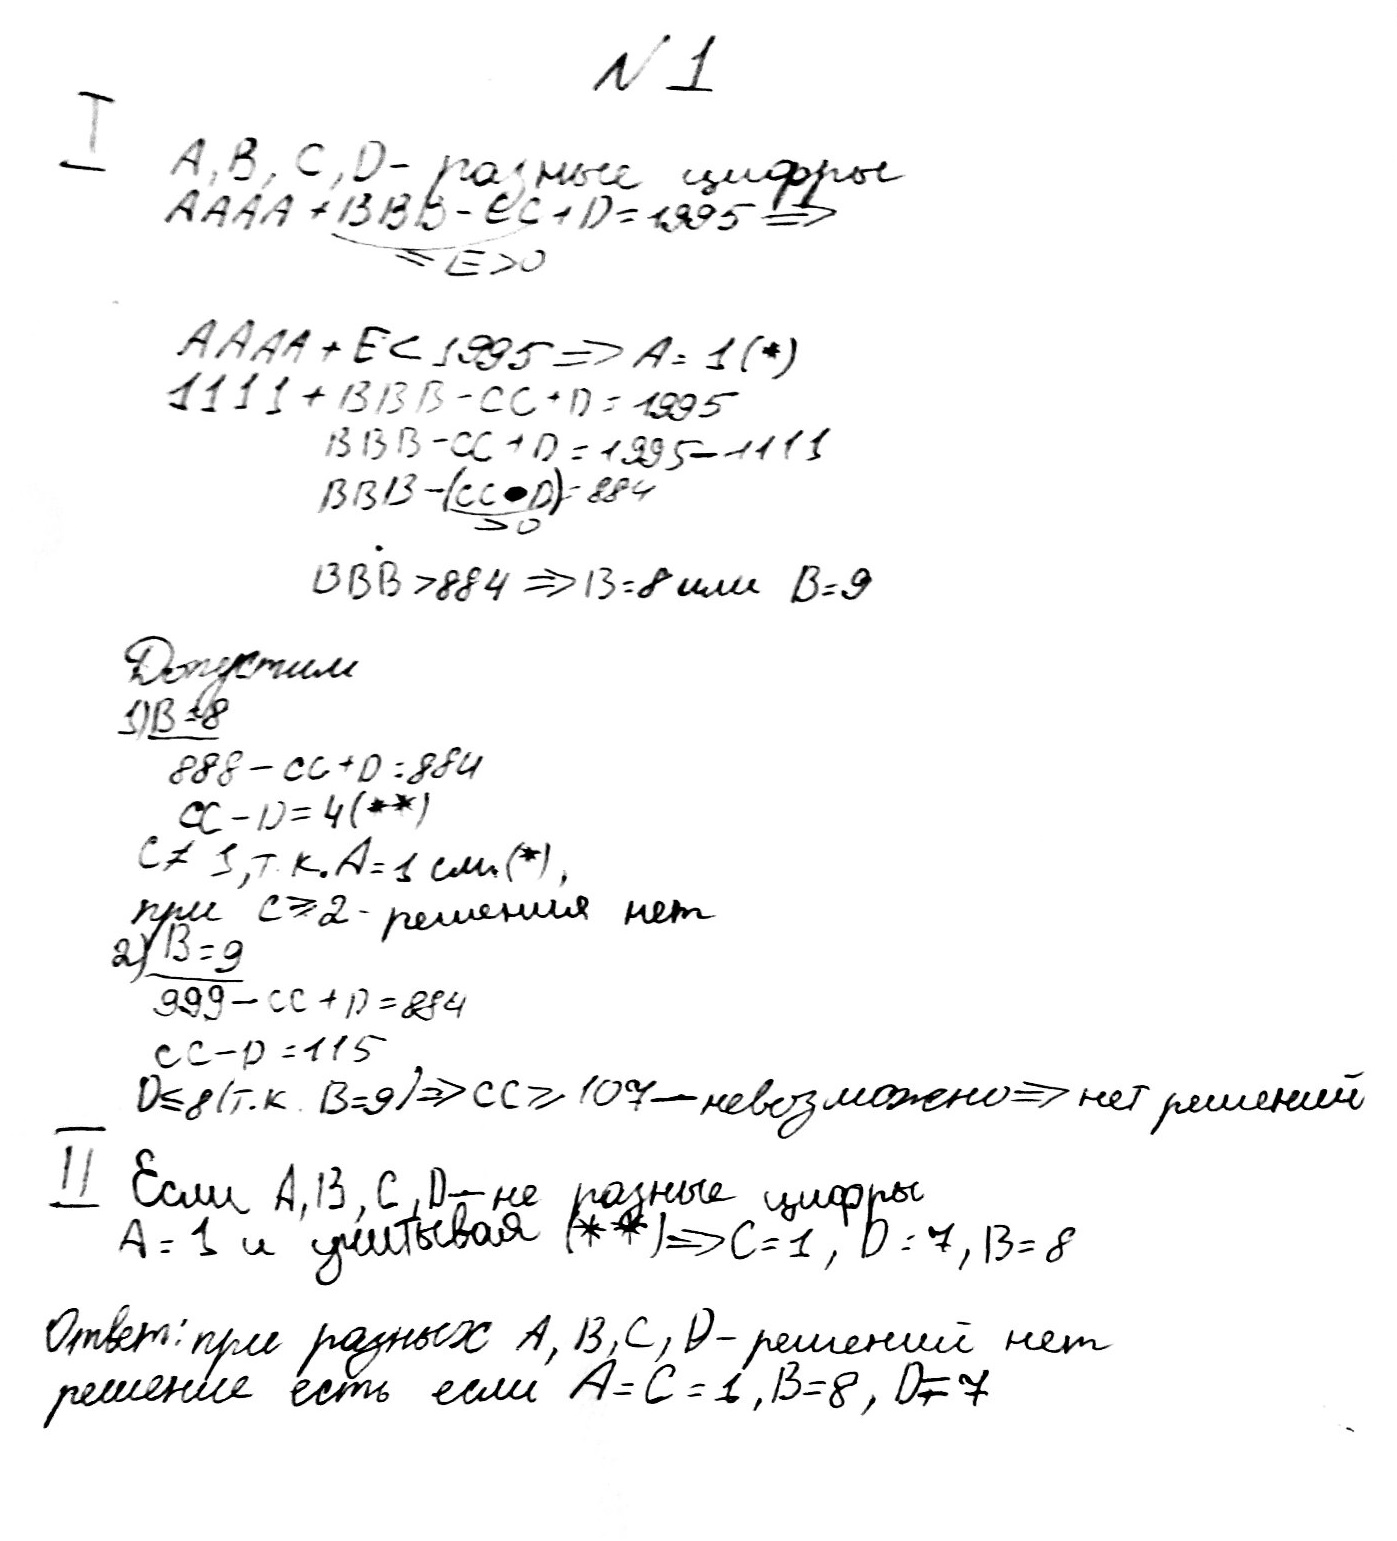 N 1
I
A, B, C, D - разные цифры
AAAA + BBB - CC + D = 1995 =>
= E > 0
AAAA + E < 1995 => A = 1 (*)
1111 + BBB - CC + D = 1995
BBB - CC + D = 1995 - 1111
BBB - (CC • D) = 884
> 0
BBB > 884 => B = 8 или B = 9
Допустим
1) B = 8
888 - CC + D = 884
CC - D = 4 (**)
C ≠ 1, т.к. A = 1 см. (*),
при C ⩾ 2 - решения нет
2) B = 9
999 - CC + D = 884
CC - D = 115
D ≤ 8 (т.к. B = 9) => CC ⩾ 107 — невозможно => нет решений
II Если A, B, C, D — не разные цифры
A = 1 и учитывая (**) => C = 1, D = 7, B = 8
Ответ: при разных A, B, C, D - решений нет
решение есть если A = C = 1, B = 8, D = 7